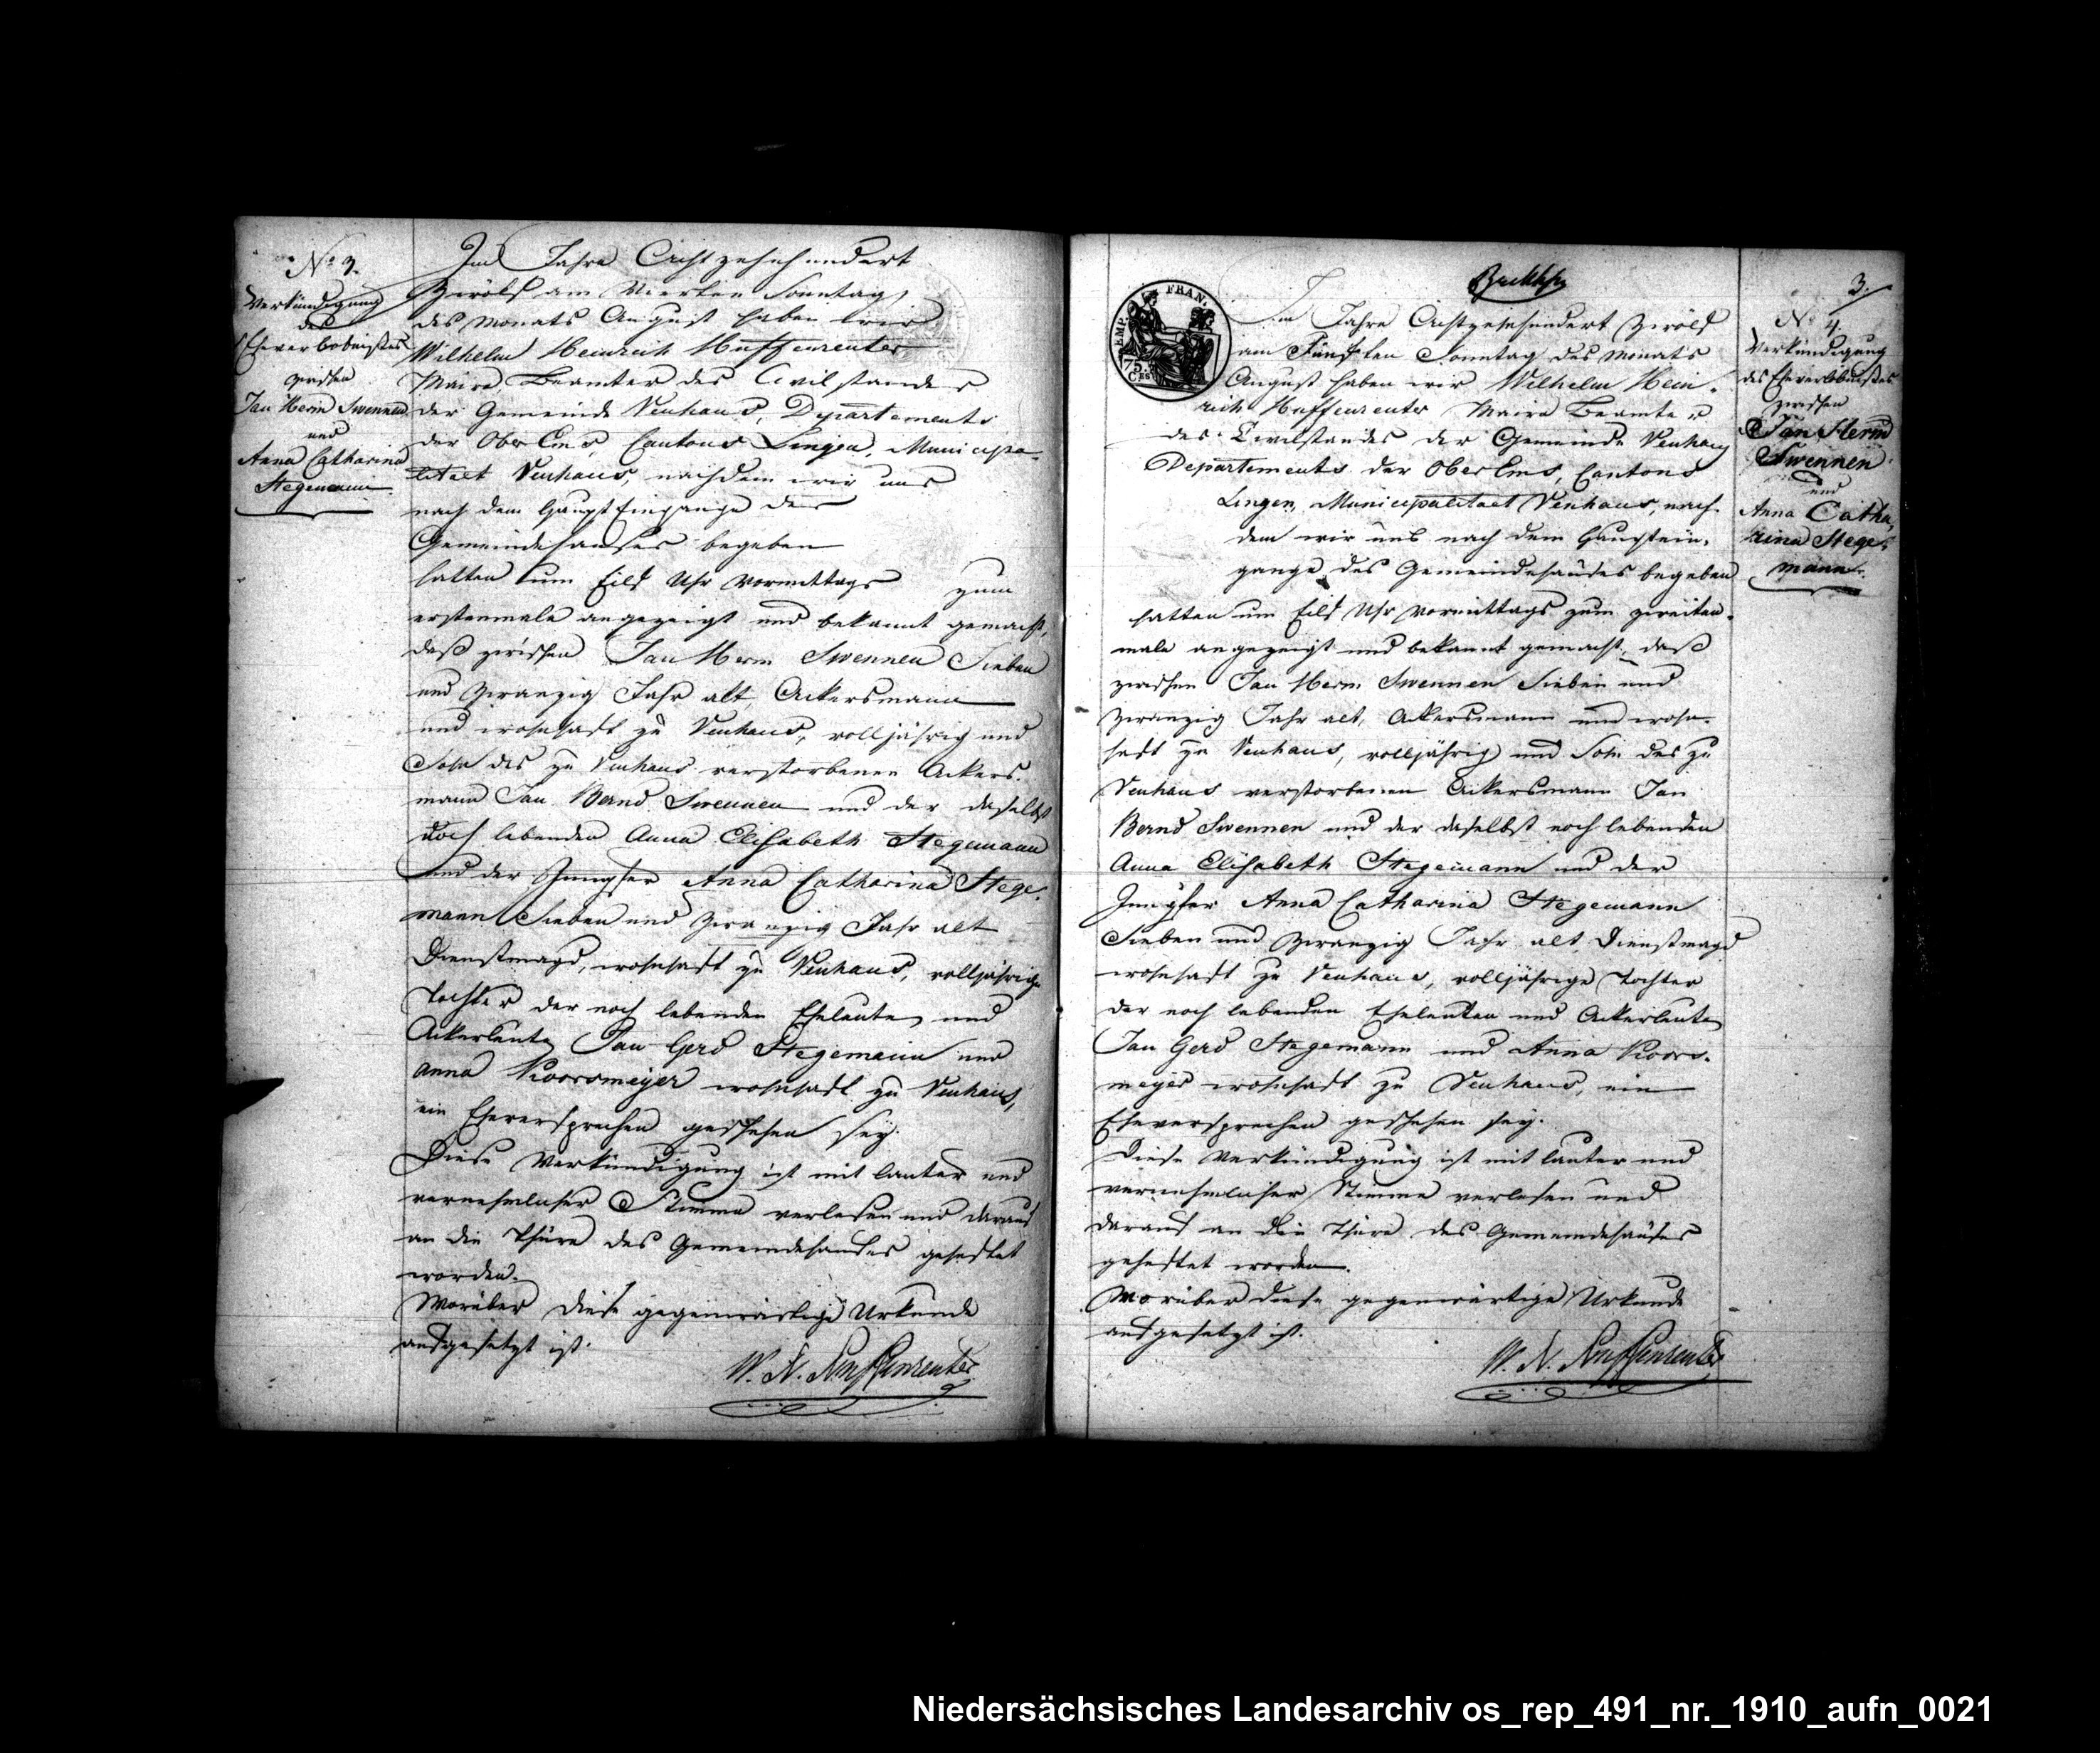 No 3.
Verkündigung
des
Eheverlöbnißes
zwischen
Jan Herm Swennen
und
Anna Catharina
Stegemann
Im Jahre Achtzehnhundert
Zwölf am Vierten Sonntag
des Monats August haben wir
Wilhelm Heinrich Huffenreuter
Maire Beamter des Civilstandes
der Gemeinde Venhaus, Departements
der Ober Ems, Cantons Lingen, Municipa-
litaet Venhaus, nachdem wir uns
nach dem Haupt Eingange des
Gemeindehauses begeben
hatten um Eilf Uhr Vormittags zum
erstenmale angezeigt und bekannt gemacht,
daß zwischen Jan Herm Swennen Sieben
und Zwanzig Jahr alt, Ackersmann
und wohnhaft zu Venhaus, volljährig und
Sohn des zu Venhaus verstorbenen Ackers-
mann Jan Bernd Swennen und der daselbst
noch lebenden Anna Elisabeth Stegemann
und der Jungfer Anna Catharina Stege-
mann Sieben und Zwanzig Jahr alt
Dienstmagd, wohnhaft zu Venhaus, volljährige
Tochter der noch lebenden Eheleute und
Ackerleute Jan Gerd Stegemann und
Anna Koorsmeyer wohnhaft zu Venhaus,
ein Eheversprechen geschehen sey.
Diese Verkündigung ist mit lauter und
vernehmlicher Stimme verlesen und darauf
an die Thüre des Gemeindehauses geheftet
worden.
Worüber diese gegenwärtige Urkunde
aufgesetzt ist.
W. H. Huffenreuter
EMP. FRAN.
75.
Ces
3.
No 4.
Verkündigung
des Eheverlöbnißes
zwischen
Jan Herm
Swennen
und
Anna Catha-
rina Stege-
mann.
Im Jahre Achtzehnhundert Zwölf
am Fünften Sonntag des Monats
August haben wir Wilhelm Hein-
rich Huffenreuter Maire Beamter
des Civilstandes der Gemeinde Venhaus
Departements der Ober Ems, Cantons
Lingen, Municipalitaet Venhaus, nach-
dem wir uns nach dem Hauptein-
gange des Gemeindehauses begeben
hatten um Eilf Uhr Vormittags zum zweiten-
male angezeigt und bekannt gemacht, daß
zwischen Jan Herm Swennen Sieben und
Zwanzig Jahr alt, Ackersmann und wohn-
haft zu Venhaus, volljährig und Sohn des zu
Venhaus verstorbenen Ackersmann Jan
Bernd Swennen und der daselbst noch lebenden
Anna Elisabeth Stegemann und der
Jungfer Anna Catharina Stegemann
Sieben und Zwanzig Jahr alt Dienstmagd
wohnhaft zu Venhaus, volljährige Tochter
der noch lebenden Eheleuten und Ackerleute
Jan Gerd Stegemann und Anna Koors-
meyer wohnhaft zu Venhaus, ein
Eheversprechen geschehen sey.
Diese Verkündigung ist mit lauter und
vernehmlicher Stimme verlesen und
darauf an die Thüre des Gemeindehauses
geheftet worden.
Worüber diese gegenwärtige Urkunde
aufgesetzt ist.
W. H. Huffenreuter
Niedersächsisches Landesarchiv os_rep_491_nr._1910_aufn_0021